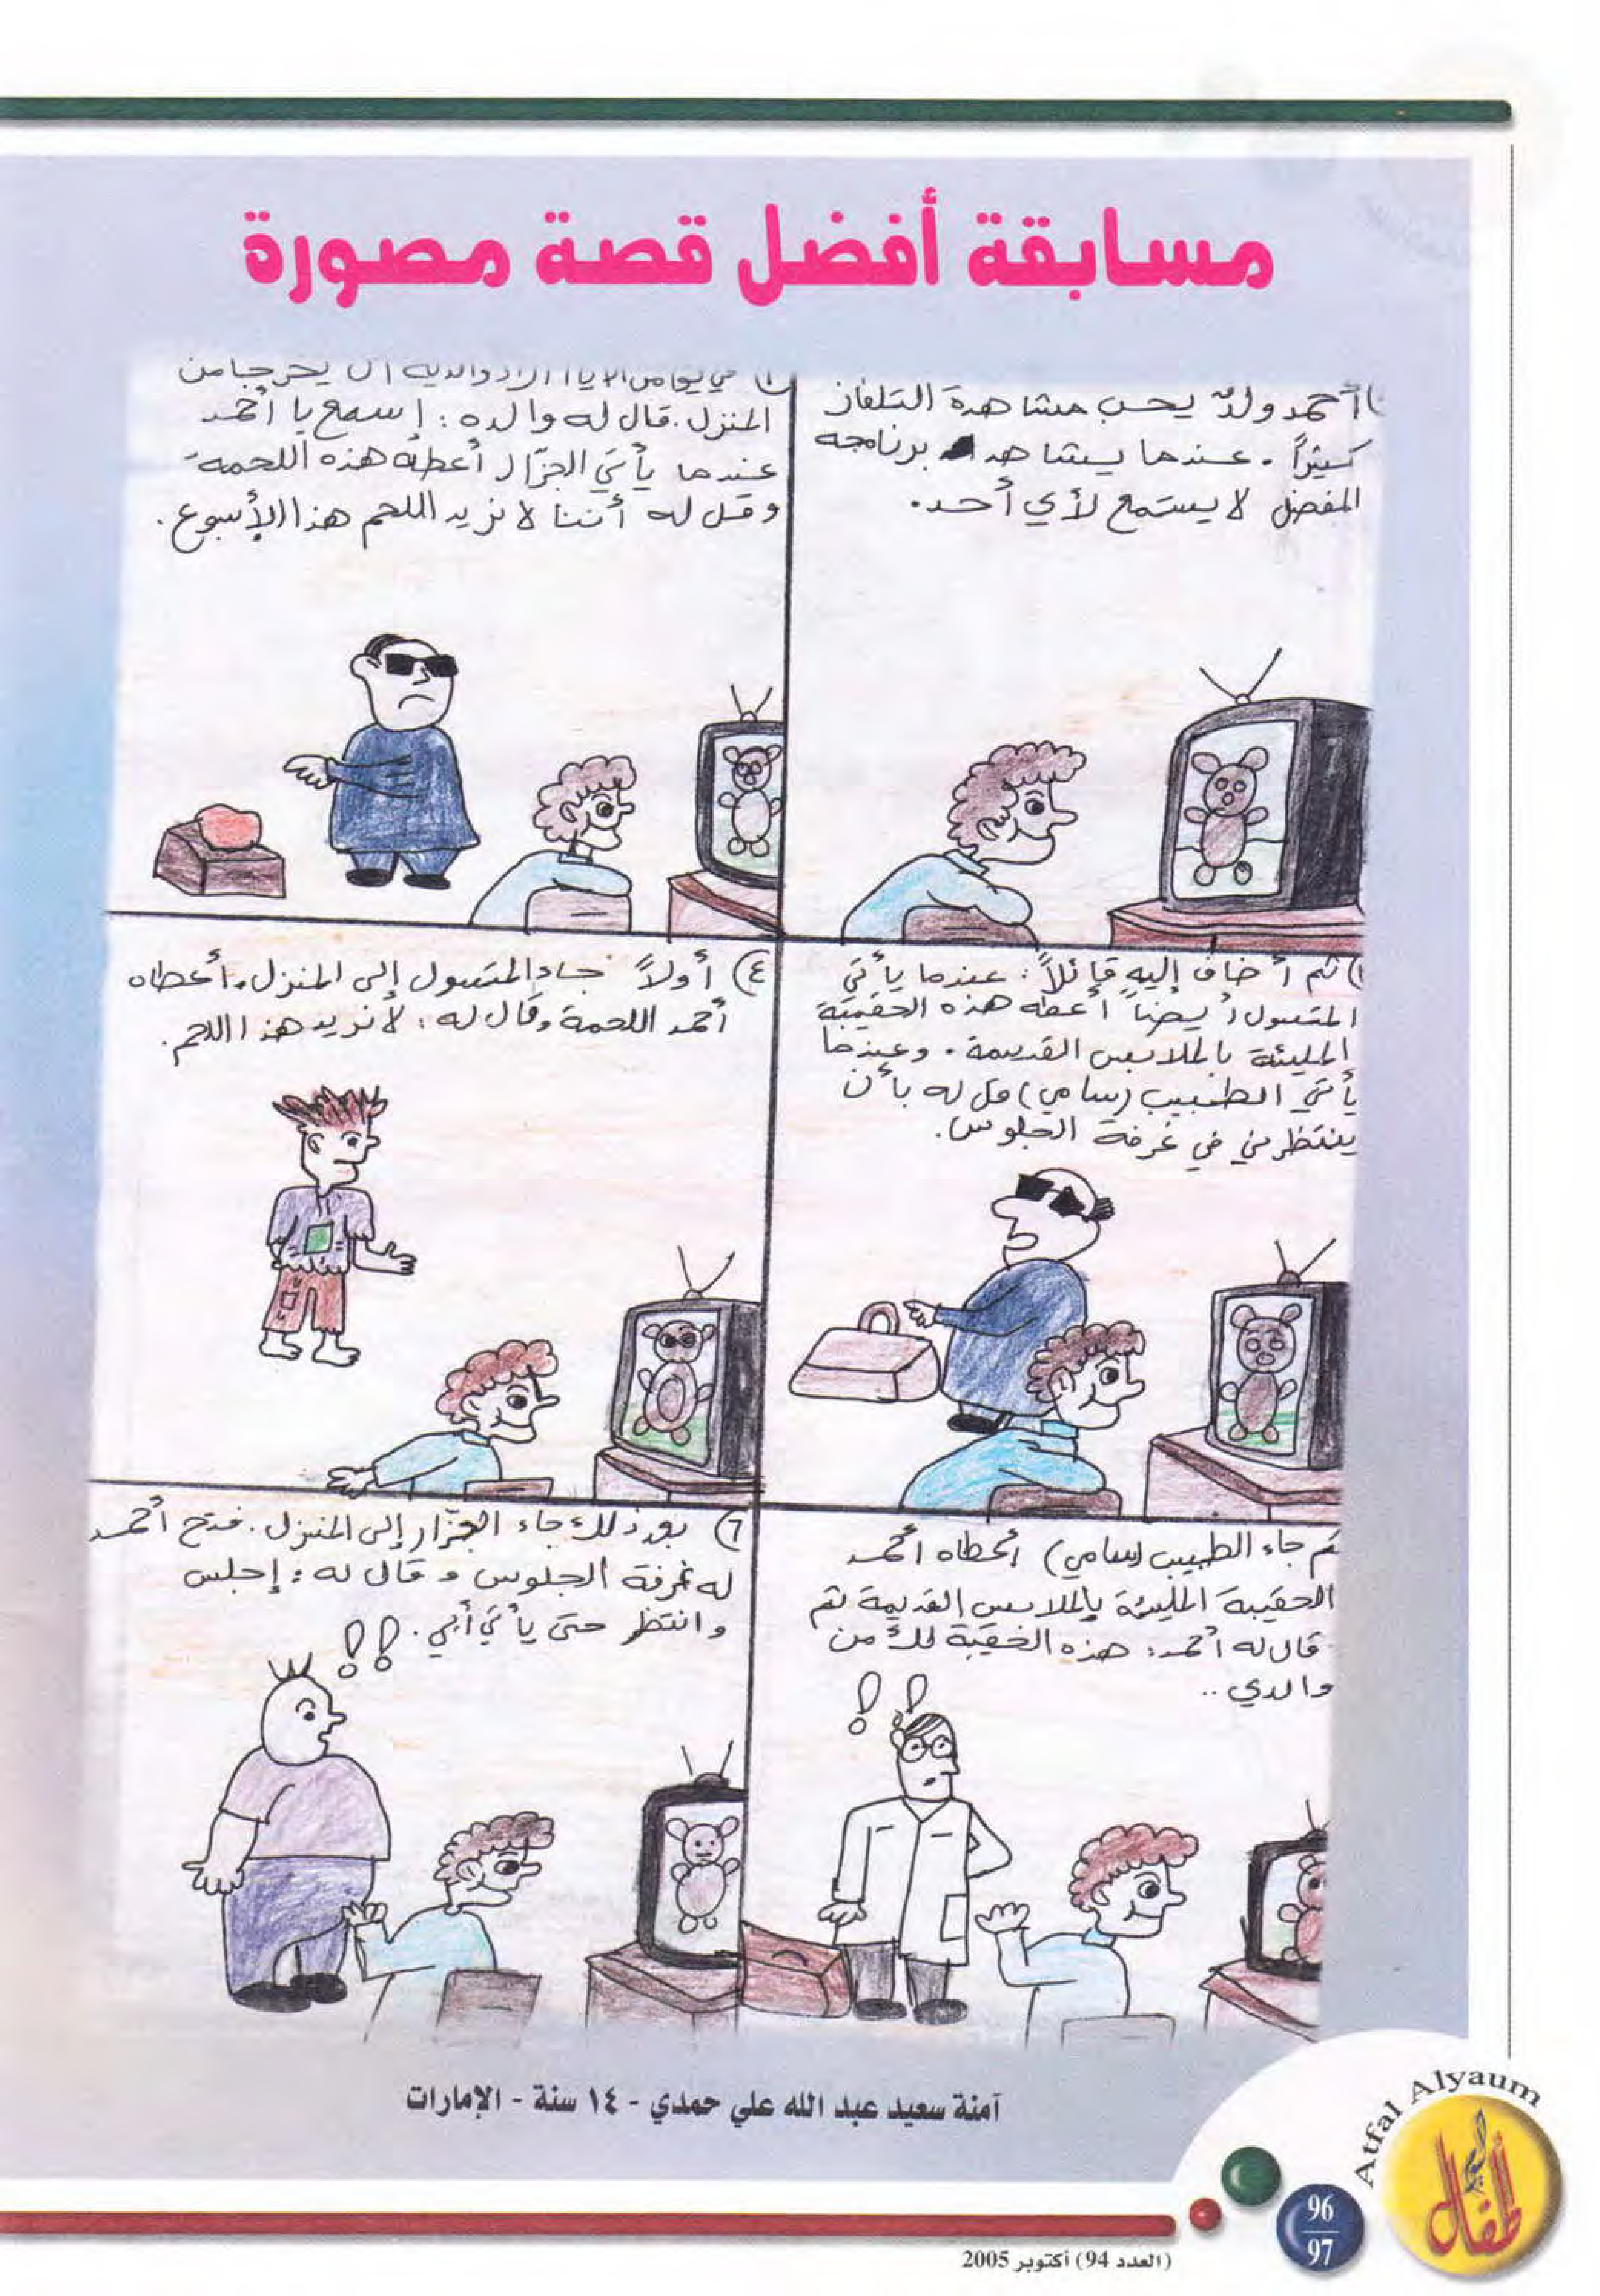 مسابقة أفضل قصة مصورة
أحمد ولدٌ يحب مشاهدة التلفاز
كثيراً. عندما يشاهد برنامجه
المفضل لا يستمع لأي أحد.
في يوم من الأيام أراد والديه أن يخرجا من
المنزل. قال له والده: اسمع يا أحمد
عندما يأتي الجزّار أعطه هذه اللحمة
وقل له أننا لا نريد اللحم هذا الأسبوع.
ثم أضاف إليه قائلاً: عندما يأتي
المتسول أيضاً أعطه هذه الحقيبة
المليئة بالملابس القديمة. وعندما
يأتي الطبيب (سامي) قل له بأن
ينتظرني في غرفة الجلوس.
٤) أولاً جاء المتسول إلى المنزل، أعطاه
أحمد اللحمة وقال له: لا نريد هذا اللحم.
ثم جاء الطبيب (سامي) أعطاه أحمد
الحقيبة المليئة بالملابس القديمة ثم
قال له أحمد: هذه الحقيبة لك من
والدي..
!!
٦) بعد ذلك جاء الجزّار إلى المنزل. فتح أحمد
له غرفة الجلوس وقال له: إجلس
وانتظر حتى يأتي أبي.
!!
آمنة سعيد عبد الله علي حمدي - ١٤ سنة - الإمارات
Atfal Alyaum
أطفال اليوم
96
97
(العدد 94) أكتوبر 2005